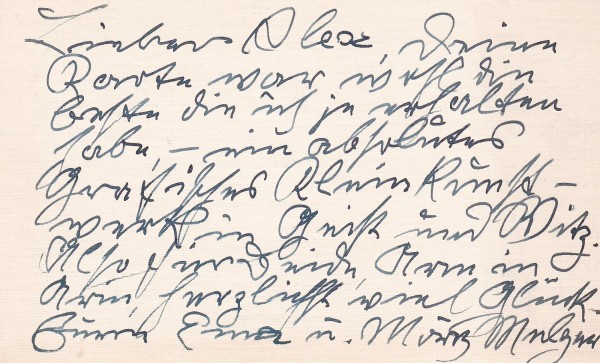 Lieber Alex, Deine
Karte war wohl die
beste die ich je erhalten
habe, – ein absolutes
Grafisches Kleinkunst-
werk in Geist und Witz.
Also für beide Arm in
Arm herzlichst viel Glück.
Eure Emma u. Mälzer